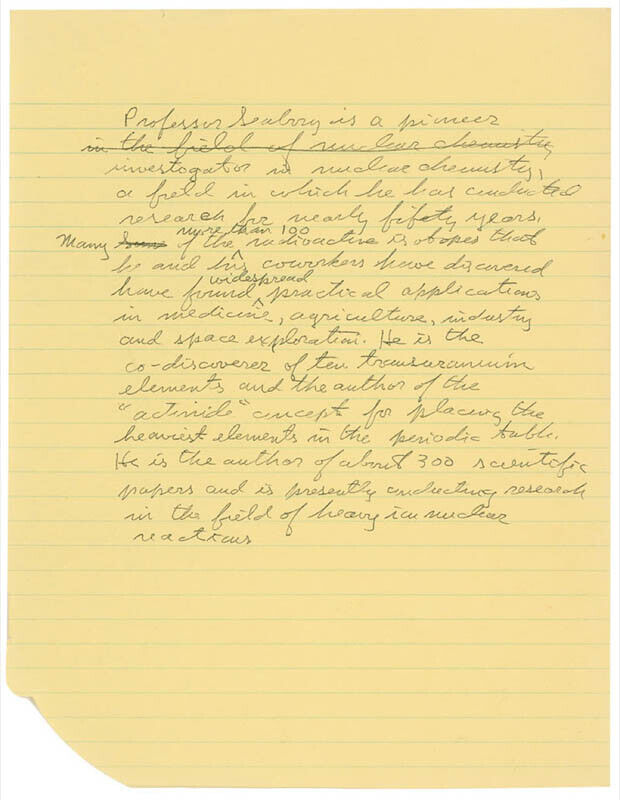 Professor Seaborg is a pioneer
in the field of nuclear chemistry
investogator in nuclear chemistry,
a field in which he has conducted
research for nearly fifety years.
Many Some of the more than 100 radioactive isotopes that
he and his coworkers have discovered
have found widespread practical applications
in medicine, agriculture, industry
and space exploration. He is the
co-discoverer of ten transuranium
elements and the author of the
"actinide" concept for placing the
heaviest elements in the periodic table.
He is the author of about 300 scientific
papers and is presently conducting research
in the field of heavy ion nuclear
reactions